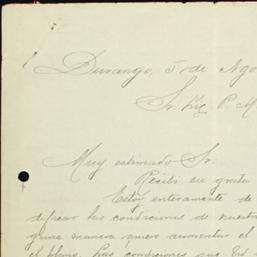 Durango, 5 de Ago
Sr. P. M
Muy estimado Sr.
Recibí su grata
Estoy enteramente de
las condiciones de nuestro
guna manera quiero aumentar el
el plano. Las condiciones que Ud